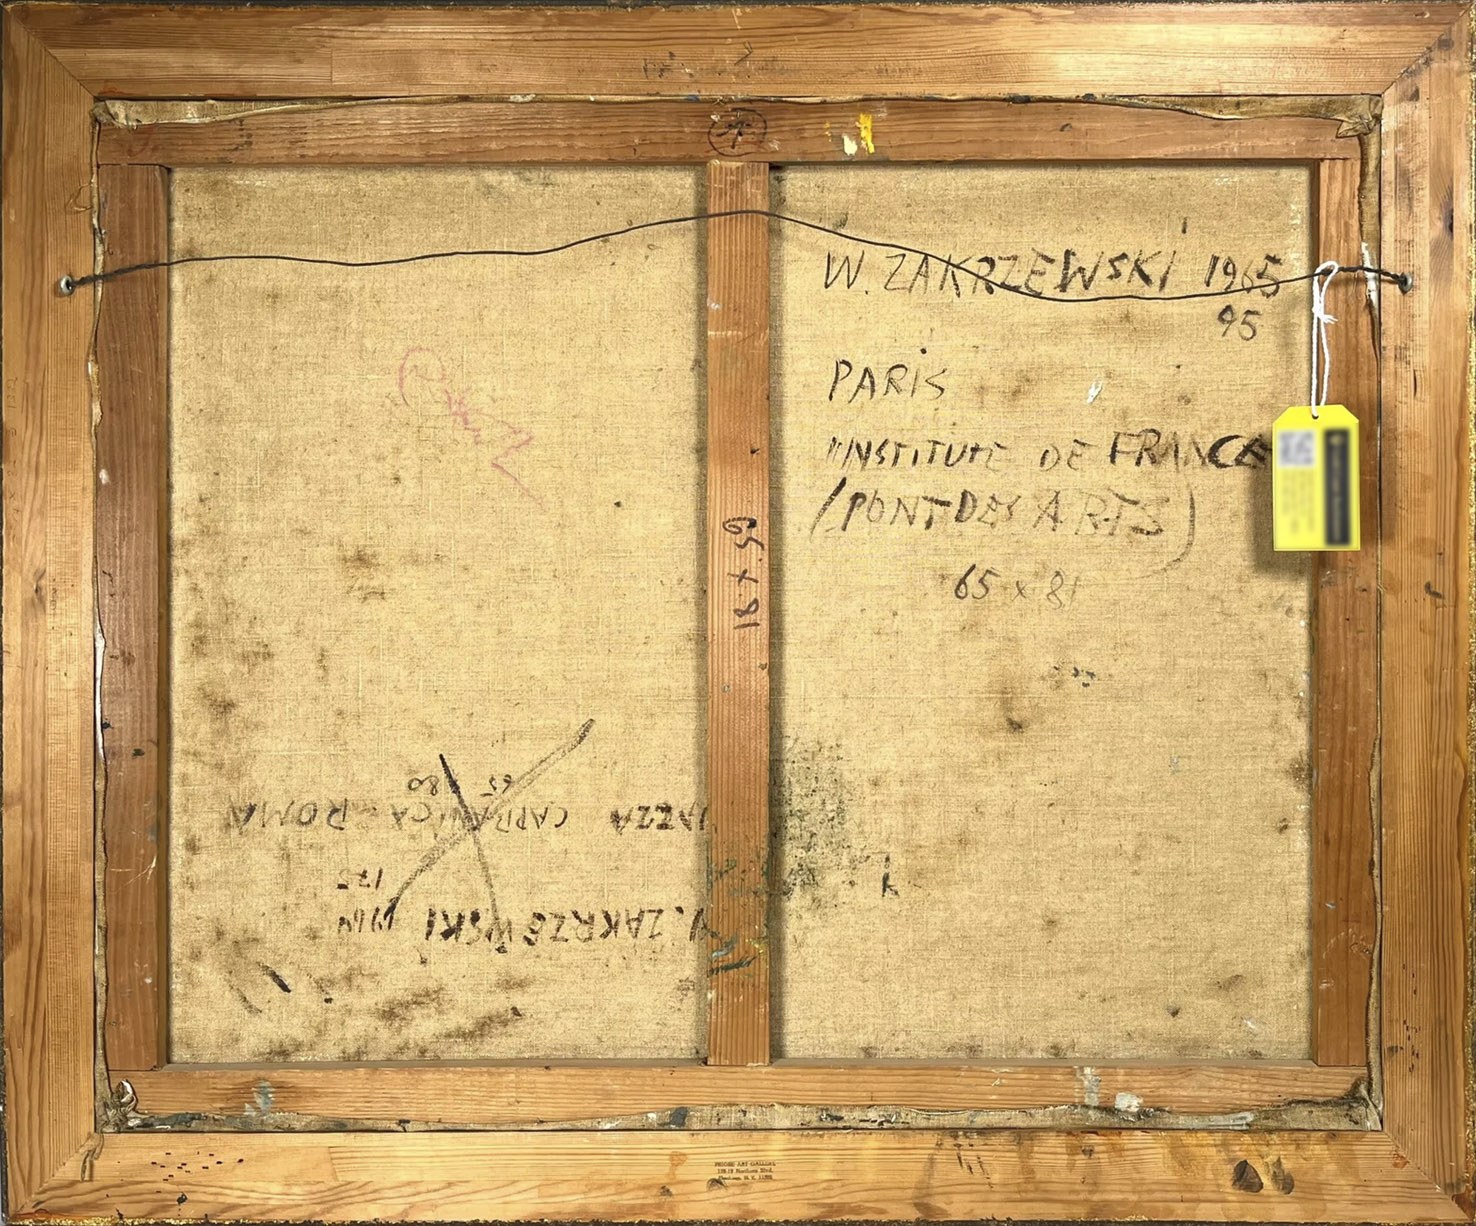 W. ZAKRZEWSKI 1965
95
PARIS
"INSTITUTE DE FRANCE
(PONT DES ARTS)
65 x 81
65 x 81
W. ZAKRZEWSKI 1964
175
CAPRANICA ROMA
65
80
ART GALLERY